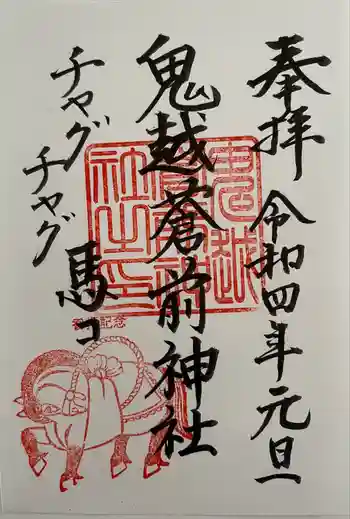 奉拝 令和四年元旦
鬼越蒼前神社
チャグ
チャグ
馬コ
鬼越蒼前神社之印